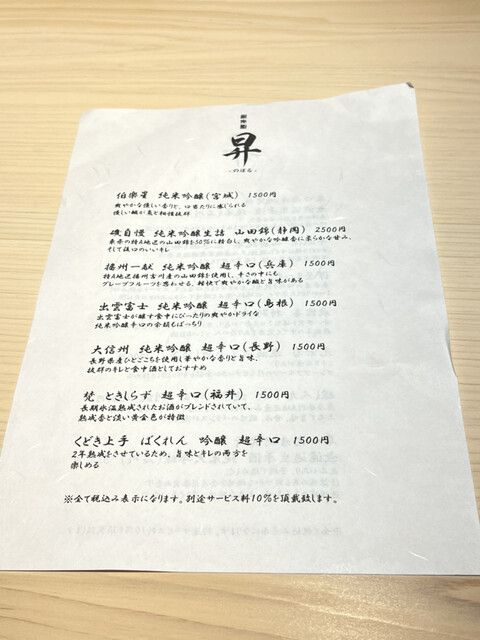 昇
-のぼる-
伯楽星 純米吟醸(宮城) 1500円
爽やかな優しい香りと、口当たりに感じられる
優しい酸が魚と相性抜群
磯自慢 純米吟醸生詰 山田錦(静岡) 2500円
東条の特A地区の山田錦を50%に精白し、爽やかな吟醸香に柔らかな甘み、
そして後口のいいキレ
播州一献 純米吟醸 超辛口(兵庫) 1500円
特A地区播州吉川産の山田錦を使用し、辛さの中にも
グレープフルーツを思わせる、軽快で爽やかな酸と旨味がある
出雲富士 純米吟醸 超辛口(島根) 1500円
出雲富士が醸す食中にぴったりの爽やかドライな
純米吟醸辛口の余韻もばっちり
大信州 純米吟醸 超辛口(長野) 1500円
長野県産ひとごこちを使用し華やかな香りと旨味、
抜群のキレと食中酒としておすすめ
梵 ときしらず 超辛口(福井) 1500円
長期氷温熟成されたお酒がブレンドされていて、
熟成香と淡い黄金色が特徴
くどき上手 ばくれん 吟醸 超辛口 1500円
2年熟成をさせているため、旨味とキレの両方を
楽しめる
※全て税込み表示になります。別途サービス料10%を頂戴致します。